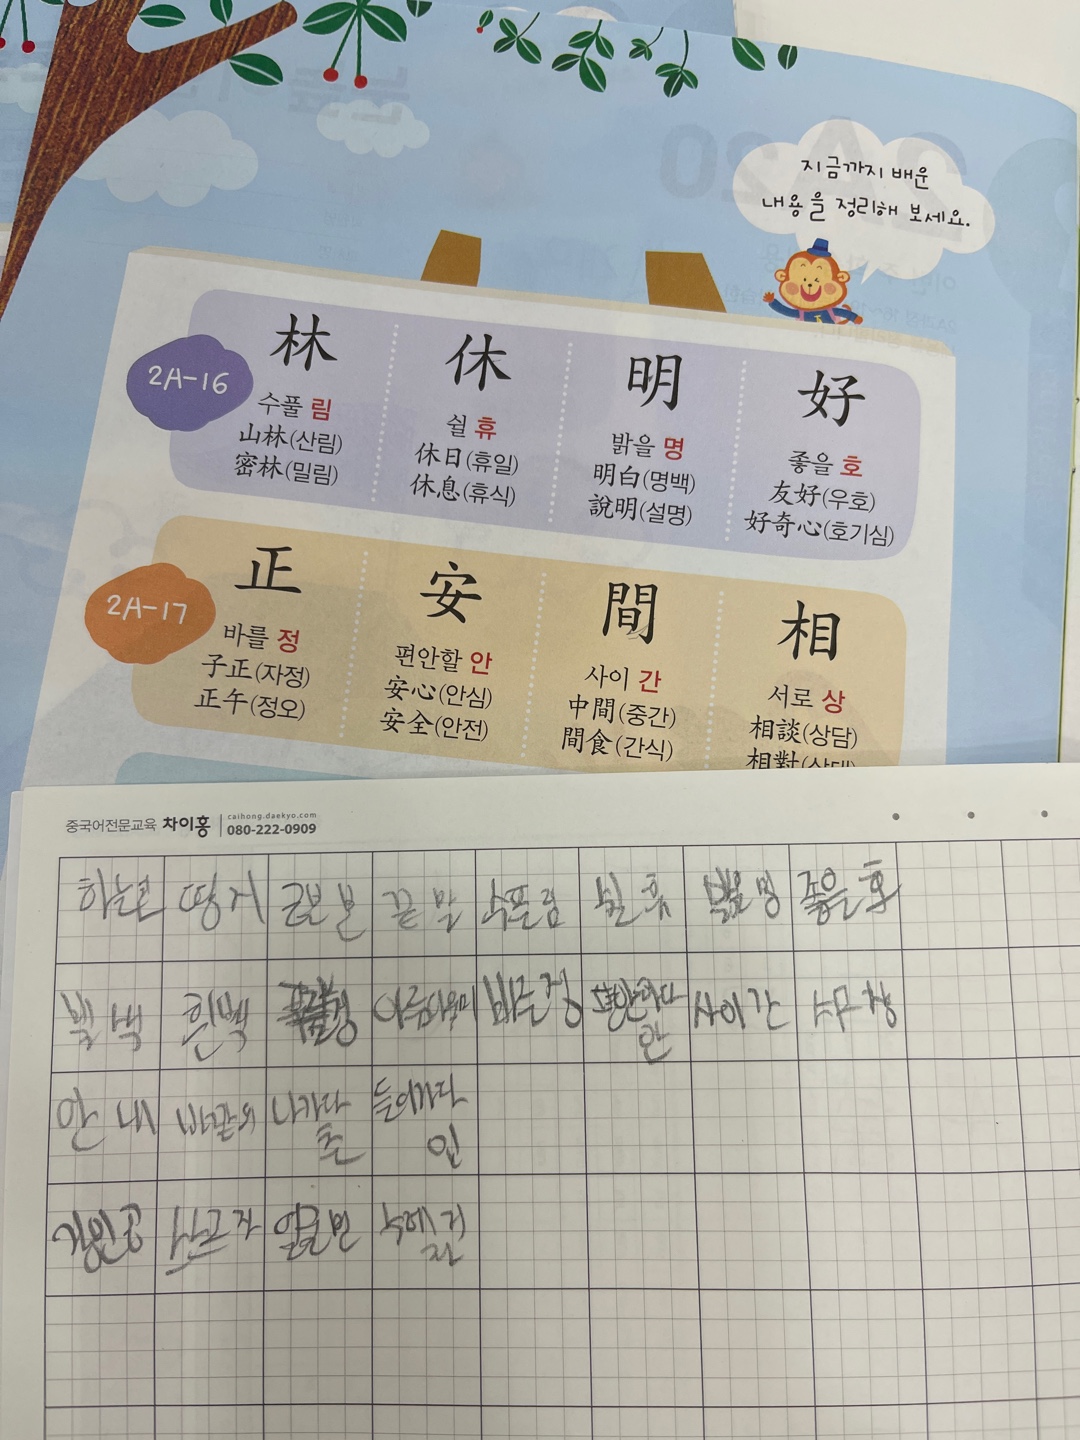 지금까지 배운
내용을 정리해 보세요.
2A-16
林 休 明 好
수풀 림 쉴 휴 밝을 명 좋을 호
山林(산림) 休日(휴일) 明白(명백) 友好(우호)
密林(밀림) 休息(휴식) 說明(설명) 好奇心(호기심)
2A-17
正 安 間 相
바를 정 편안할 안 사이 간 서로 상
子正(자정) 安心(안심) 中間(중간) 相談(상담)
正午(정오) 安全(안전) 間食(간식) 相對(상대)
중국어전문교육 차이홍 caihong.daekyo.com
080-222-0909
땅 지 근본 본 끝 말 수풀 림 쉴 휴 좋을 호
빛 색 흰 백 바를 정 사이 간
안 내 바깥 외 나가다 출 들어가다 입
장인 공